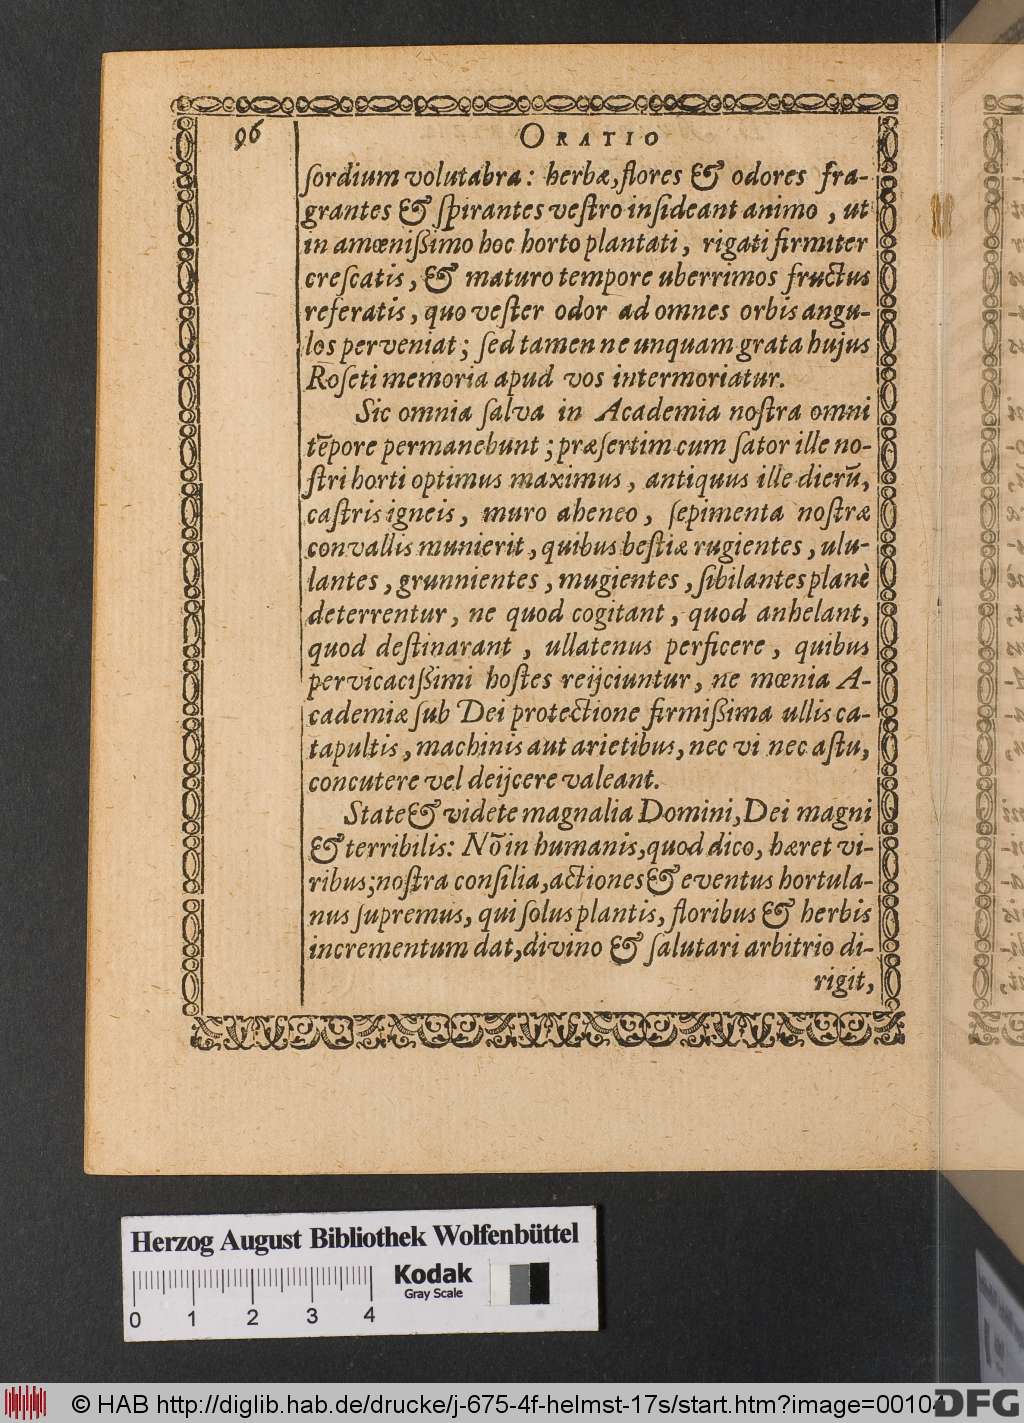 96
ORATIO
ſordium volutabra: herbæ, flores & odores fra-
grantes & ſpirantes veſtro inſideant animo, ut
in amœniſſimo hoc horto plantati, rigati firmiter
creſcatis, & maturo tempore uberrimos fructus
referatis, quo veſter odor ad omnes orbis angu-
los perveniat; ſed tamen ne unquam grata hujus
Roſeti memoria apud vos intermoriatur.
Sic omnia ſalva in Academia noſtra omni
tēpore permanebunt; præſertim cum ſator ille no-
ſtri horti optimus maximus, antiquus ille dierū,
caſtris igneis, muro aheneo, ſepimenta noſtræ
convallis munierit, quibus beſtiæ rugientes, ulu-
lantes, grunnientes, mugientes, ſibilantes planè
deterrentur, ne quod cogitant, quod anhelant,
quod deſtinarant, ullatenus perficere, quibus
pervicaciſſimi hoſtes reijciuntur, ne mœnia A-
cademiæ ſub Dei protectione firmißima ullis ca-
tapultis, machinis aut arietibus, nec vi nec aſtu,
concutere vel deijcere valeant.
State & videte magnalia Domini, Dei magni
& terribilis: Nō in humanis, quod dico, hæret vi-
ribus; noſtra conſilia, actiones & eventus hortula-
nus ſupremus, qui ſolus plantis, floribus & herbis
incrementum dat, divino & ſalutari arbitrio di-
rigit,
Herzog August Bibliothek Wolfenbüttel
Kodak
Gray Scale
0 1 2 3 4
© HAB http://diglib.hab.de/drucke/j-675-4f-helmst-17s/start.htm?image=00104
DFG